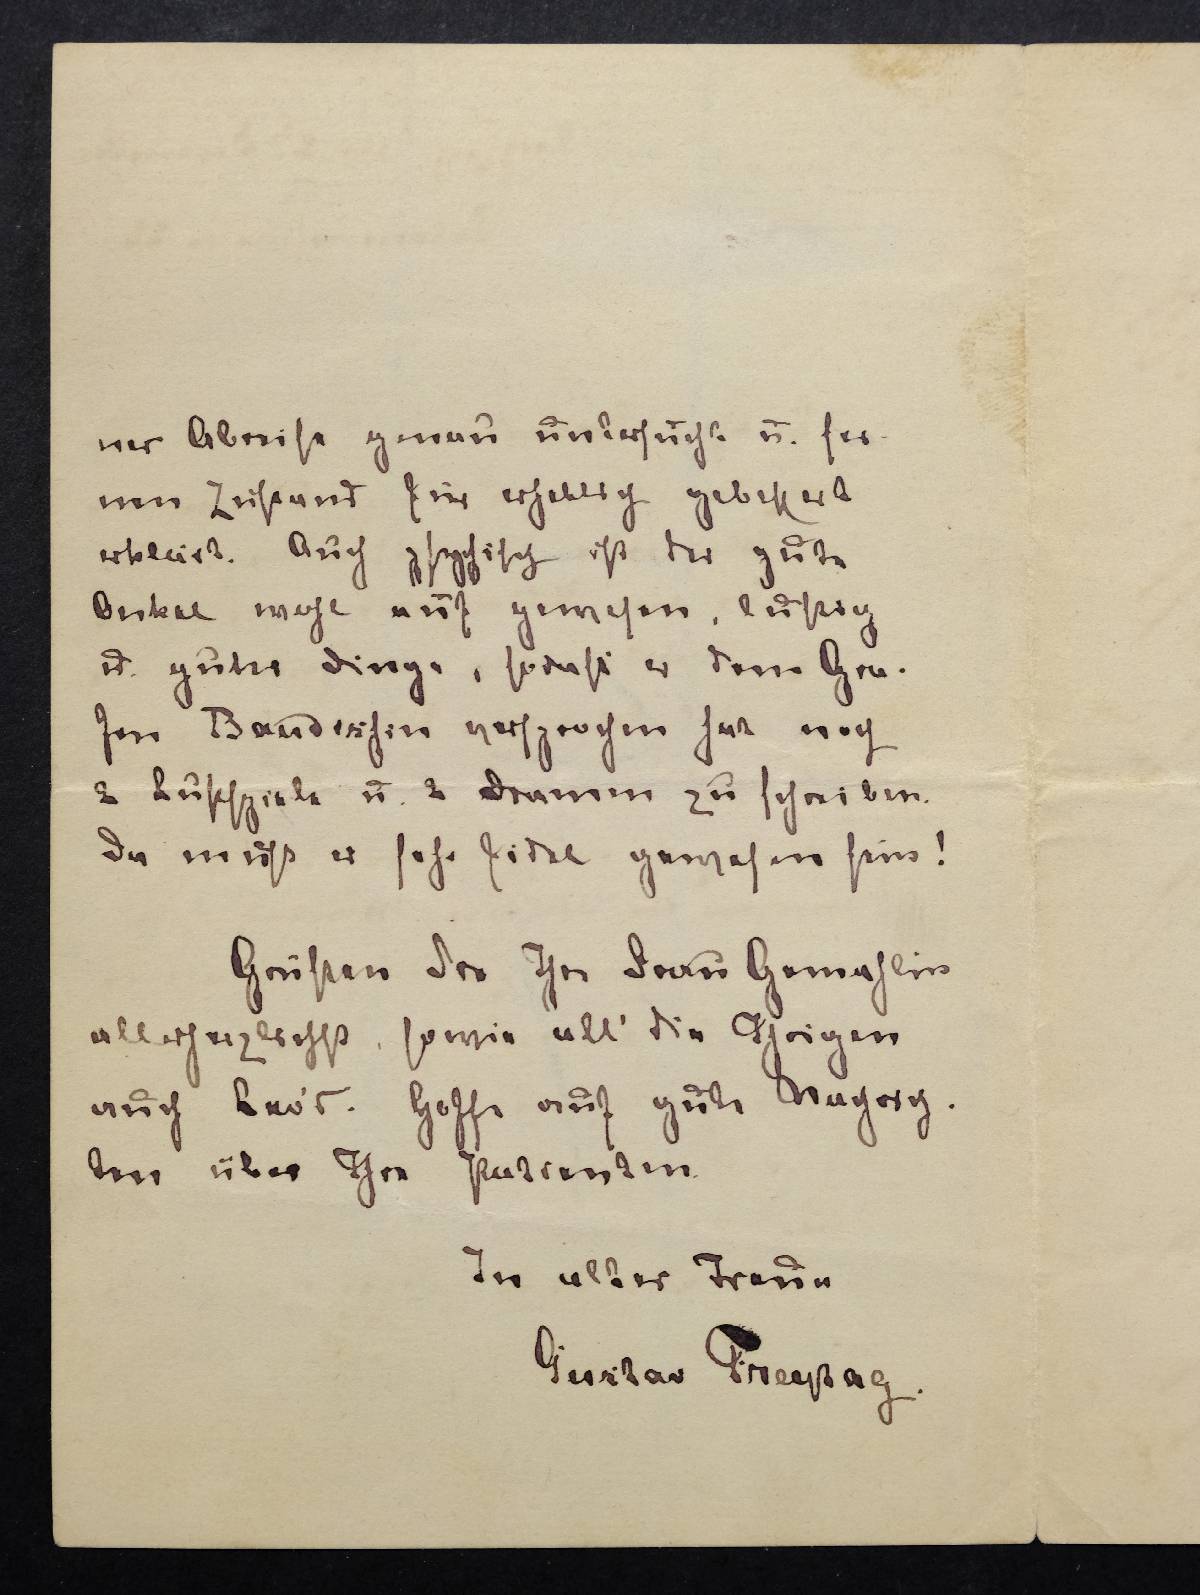 ner Abreise genau untersucht u. sei-
nen Zustand für erheblich gebessert
erklärt. Auch psychisch ist der gute
Onkel wohl auf gewesen, lustig
u. guter Dinge, sodaß er dem Gra-
fen Baudissin versprochen hat noch
2 Lustspiele u. 2 Dramen zu schreiben.
Da muß er sehr fidel gewesen sein!
Grüßen Sie Ihre Frau Gemahlin
allerherzlichst, sowie all' die Ihrigen
auch Leo's. Hoffe auf gute Nachrich-
ten über Ihre Patienten.
In alter Treue
Gustav Freytag.